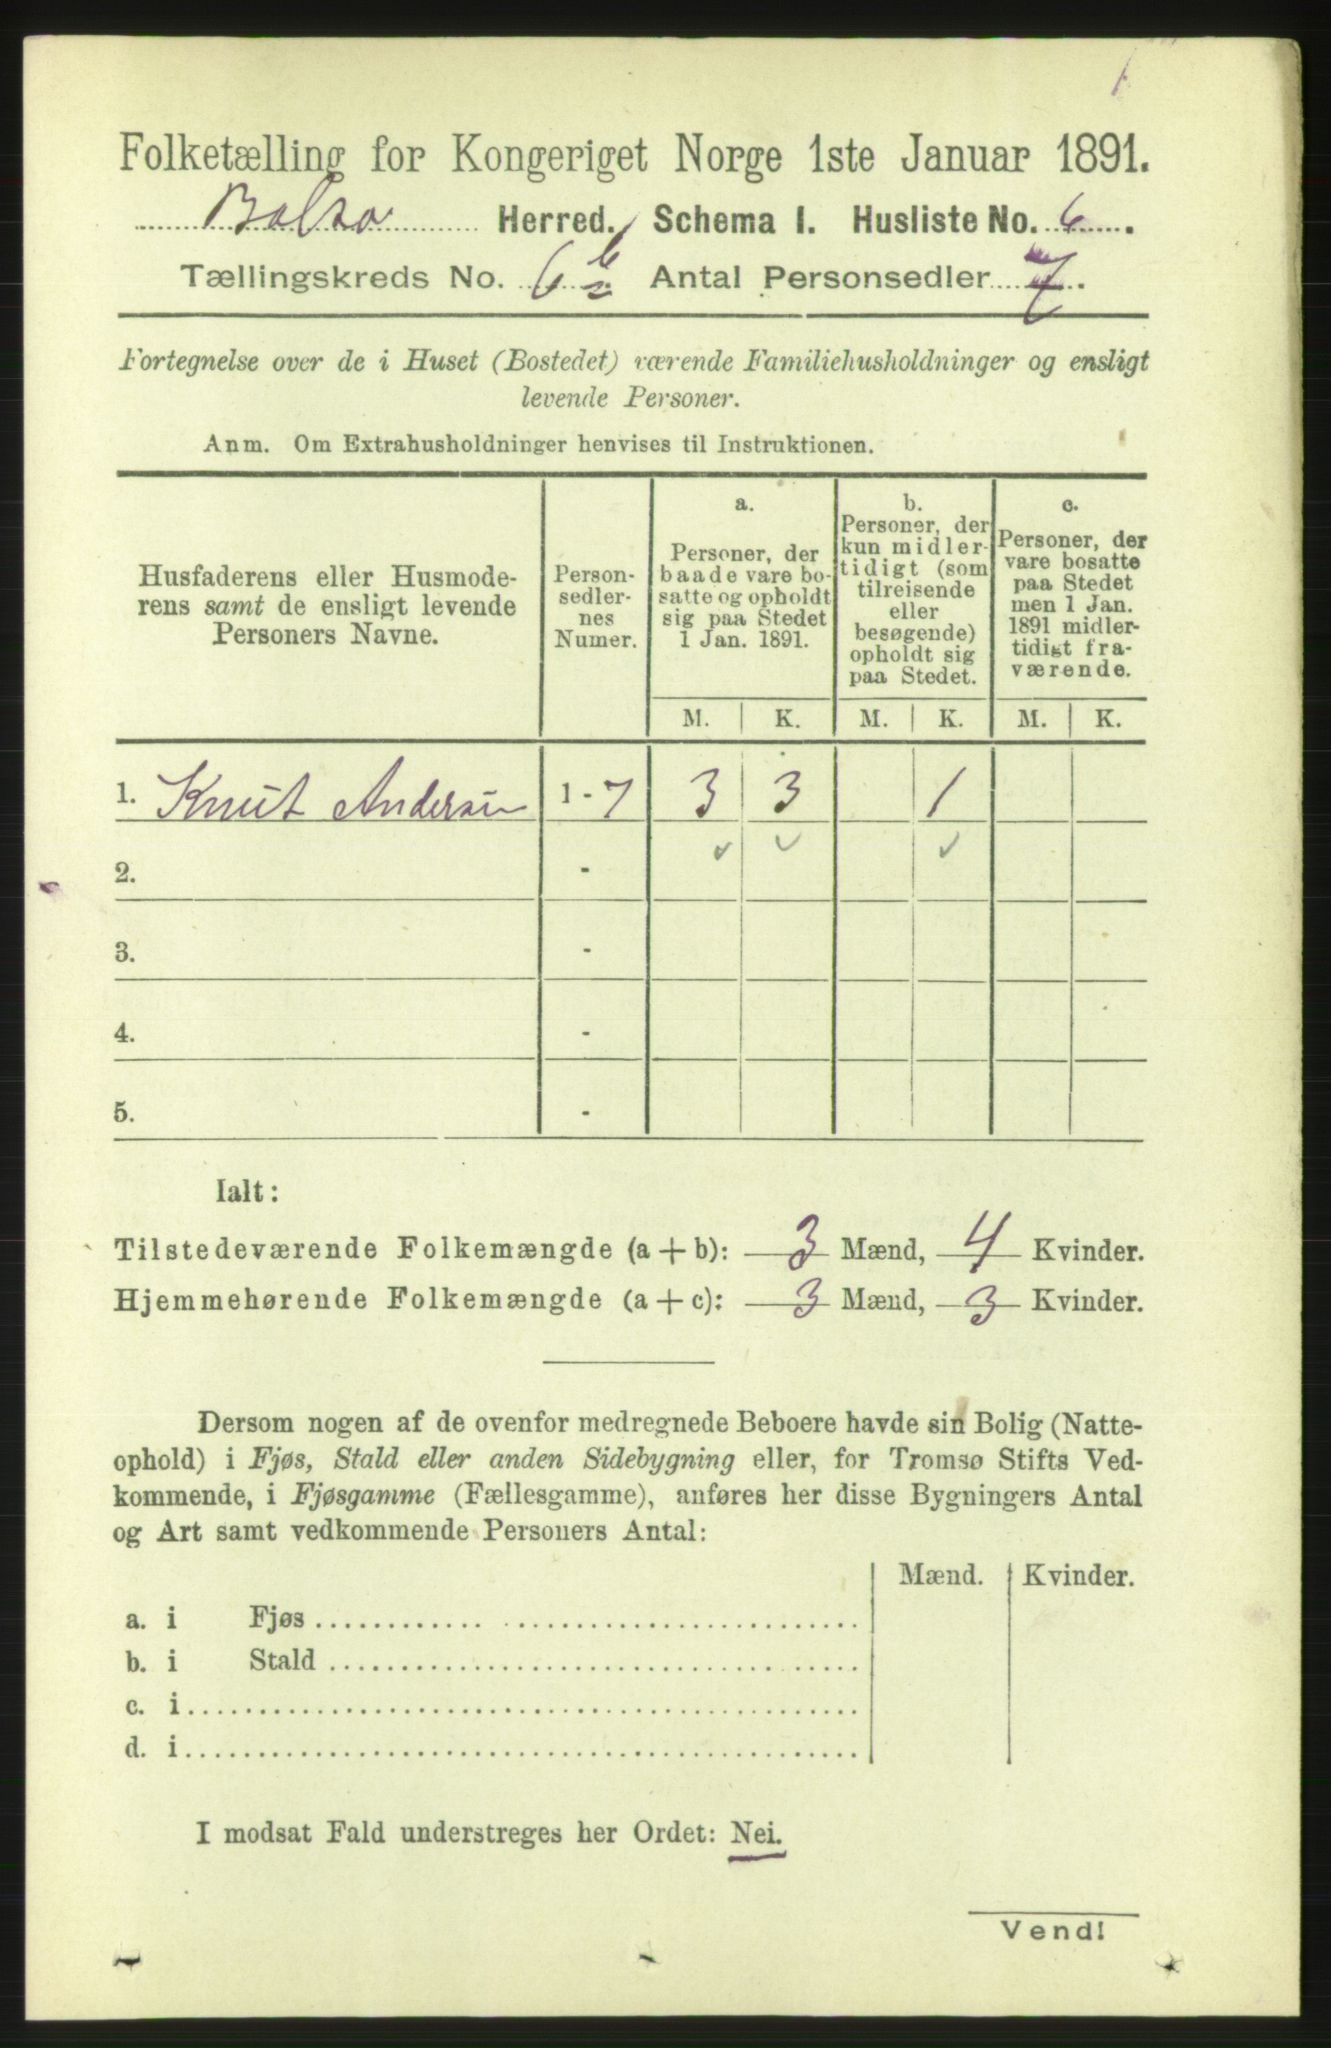 Folketælling for Kongeriget Norge 1ste Januar 1891.
Bolsø Herred. Schema I. Husliste No. 6.
Tællingskreds No. 6 b Antal Personsedler 7.
Fortegnelse over de i Huset (Bostedet) værende Familiehusholdninger og ensligt
levende Personer.
Anm. Om Extrahusholdninger henvises til Instruktionen.
Husfaderens eller Husmode-
rens samt de ensligt levende
Personers Navne.
Person-
sedler-
nes
Numer.
a.
Personer, der
baade vare bo-
satte og opholdt
sig paa Stedet
1 Jan. 1891.
b.
Personer, der
kun midler-
tidigt (som
tilreisende
eller
besøgende)
opholdt sig
paa Stedet.
c.
Personer, der
vare bosatte
paa Stedet
men 1 Jan.
1891 midler-
tidigt fra-
værende.
M. K. M. K. M. K.
1. Knut Andersen 1 - 7 3 3 1
2. -
3. -
4. -
5. -
Ialt:
Tilstedeværende Folkemængde (a + b): 3 Mænd, 4 Kvinder.
Hjemmehørende Folkemængde (a + c): 3 Mænd, 3 Kvinder.
Dersom nogen af de ovenfor medregnede Beboere havde sin Bolig (Natte-
ophold) i Fjøs, Stald eller anden Sidebygning eller, for Tromsø Stifts Ved-
kommende, i Fjøsgamme (Fællesgamme), anføres her disse Bygningers Antal
og Art samt vedkommende Personers Antal:
Mænd. Kvinder.
a. i Fjøs
b. i Stald
c. i
d. i
I modsat Fald understreges her Ordet: Nei.
Vend!